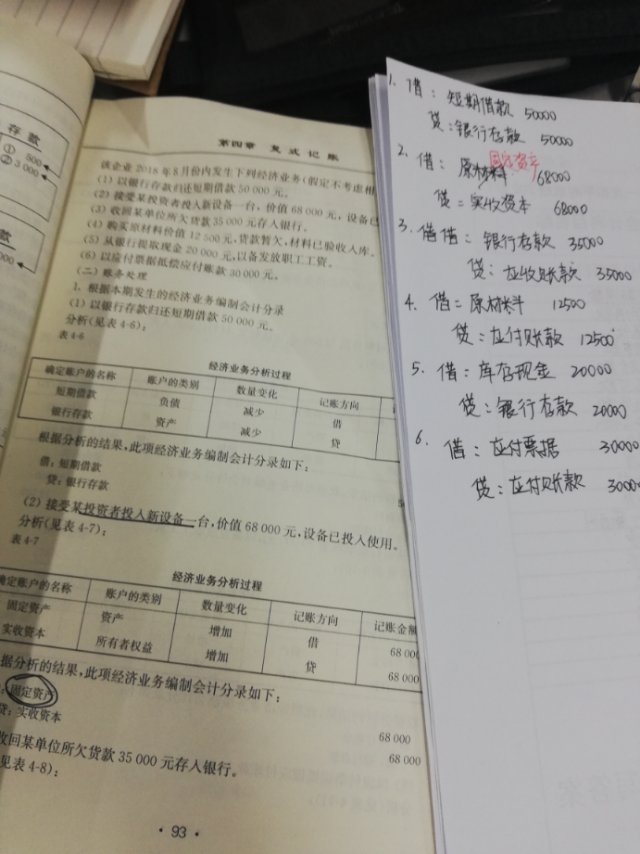 存款
① 500
② 3 000
款
000
第四章 复式记账
该企业2018年8月份内发生下列经济业务(假定不考虑相
(1) 以银行存款归还短期借款50 000元。
(2) 接受某投资者投入新设备一台,价值68 000元,设备已
(3) 收回某单位所欠货款35 000元存入银行。
(4) 购买原材料价值12 500元,货款暂欠,材料已验收入库。
(5) 从银行提取现金20 000元,以备发放职工工资。
(6) 以应付票据抵偿应付账款30 000元。
(二) 账务处理
1. 根据本期发生的经济业务编制会计分录
(1) 以银行存款归还短期借款50 000元。
分析(见表4-8):
表4-6
经济业务分析过程
确定账户的名称 账户的类别 数量变化 记账方向
短期借款 负债 减少 借
银行存款 资产 减少 贷
根据分析的结果,此项经济业务编制会计分录如下:
借:短期借款
贷:银行存款
(2) 接受某投资者投入新设备一台,价值68 000元,设备已投入使用。
分析(见表4-7):
表4-7
经济业务分析过程
确定账户的名称 账户的类别 数量变化 记账方向 记账金额
固定资产 资产 增加 借 68 000
实收资本 所有者权益 增加 贷 68 000
据分析的结果,此项经济业务编制会计分录如下:
固定资产 68 000
贷:实收资本 68 000
收回某单位所欠货款35 000元存入银行。
见表4-8):
· 93 ·
1. 借:短期借款 50000
贷:银行存款 50000
固定资产
2. 借:原材料 68000
贷:实收资本 68000
3. 借借:银行存款 35000
贷:应收账款 35000
4. 借:原材料 12500
贷:应付账款 12500
5. 借:库存现金 20000
贷:银行存款 20000
6. 借:应付票据 30000
贷:应付账款 30000